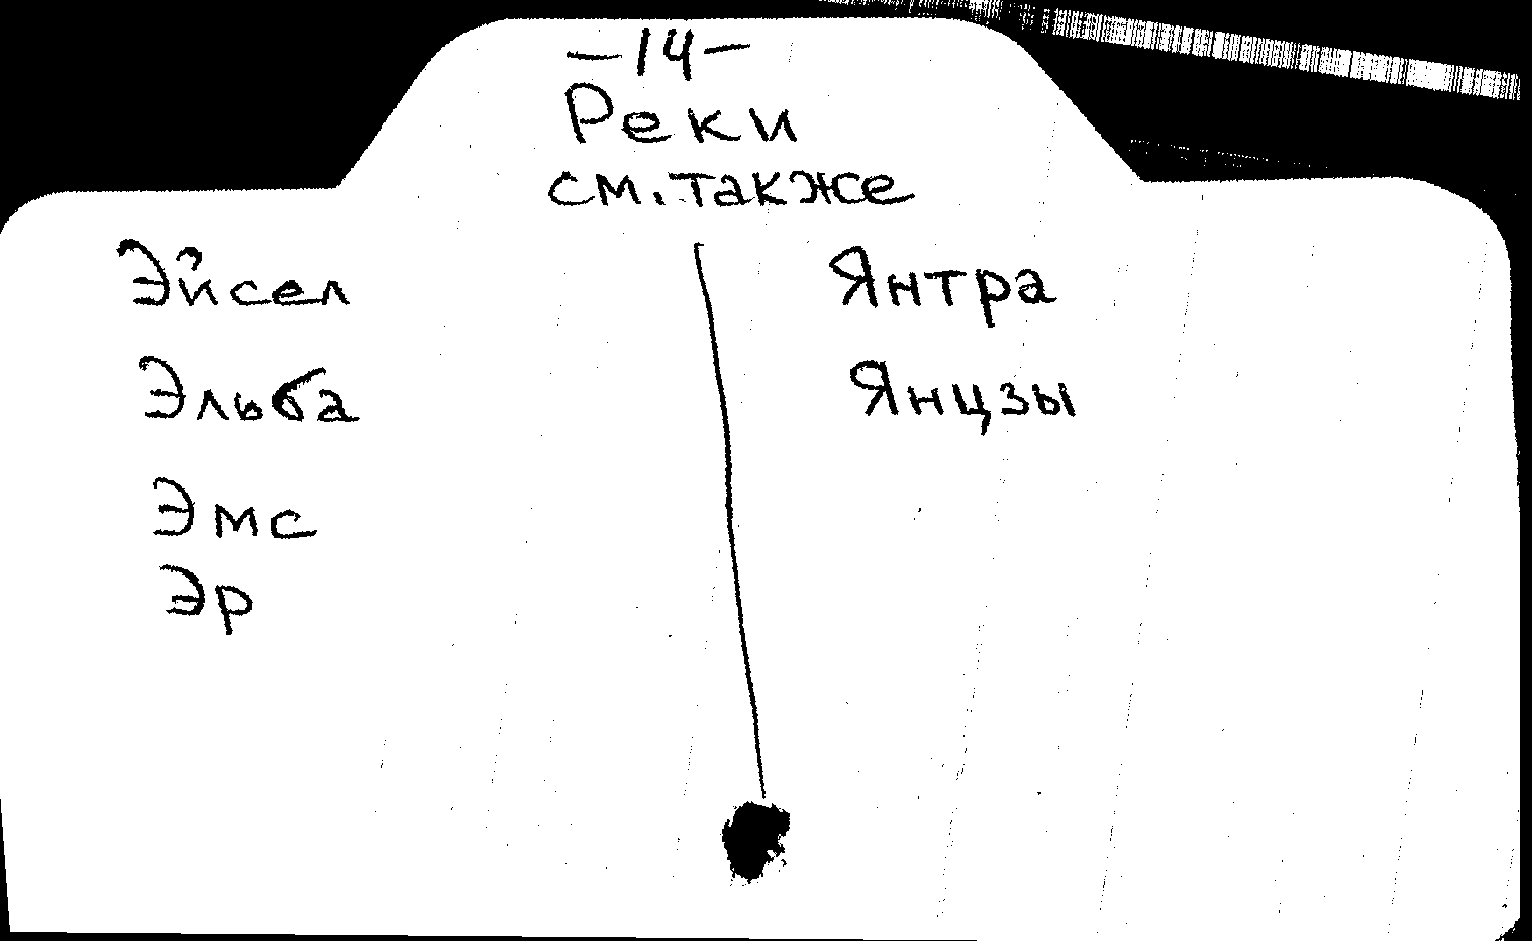 -14-
Реки
см. также
Эйсел
Эльба
Эмс
Эр
Янтра
Янцзы